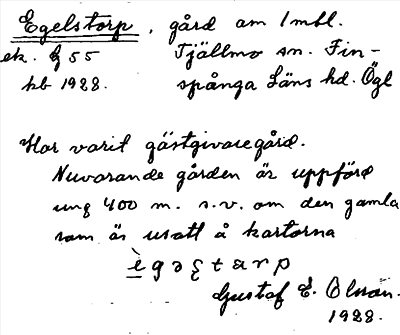 Egelstorp, gård om 1 mtl.
ek. bl 55 Tjällmo sn. Fin-
kb 1928. spånga Läns hd. Ögl
Har varit gästgivaregård.
Nuvarande gården är uppförd
ung 400 m. s.v. om den gamla
som är utsatt å kartorna
Gustaf E. Olsson.
1928.